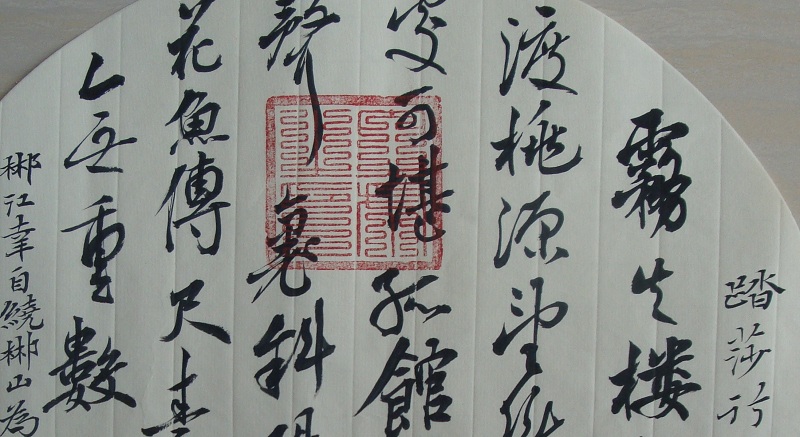 踏莎行
霧失楼
渡桃源望
处可堪孤館
聲裏斜
花魚傳尺素
无重數
郴江幸自繞郴山為